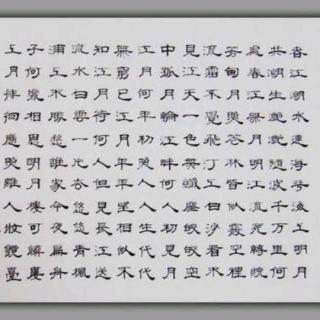 春江潮水連海平海上明月
共潮生灩灩隨波千萬里何
處春江無月明江流宛轉遶
芳甸月照花林皆似霰空裡
流霜不覺飛汀上白沙看不
見江天一色無纖塵皎皎空
中孤月輪江畔何人初見月
江月何年初照人人生代代
無窮已江月年年望相似不
知江月待何人但見長江送
流水白雲一片去悠悠青楓
浦上不勝愁誰家今夜扁舟
子何處相思明月樓可憐樓
上月徘徊應照離人妝鏡臺